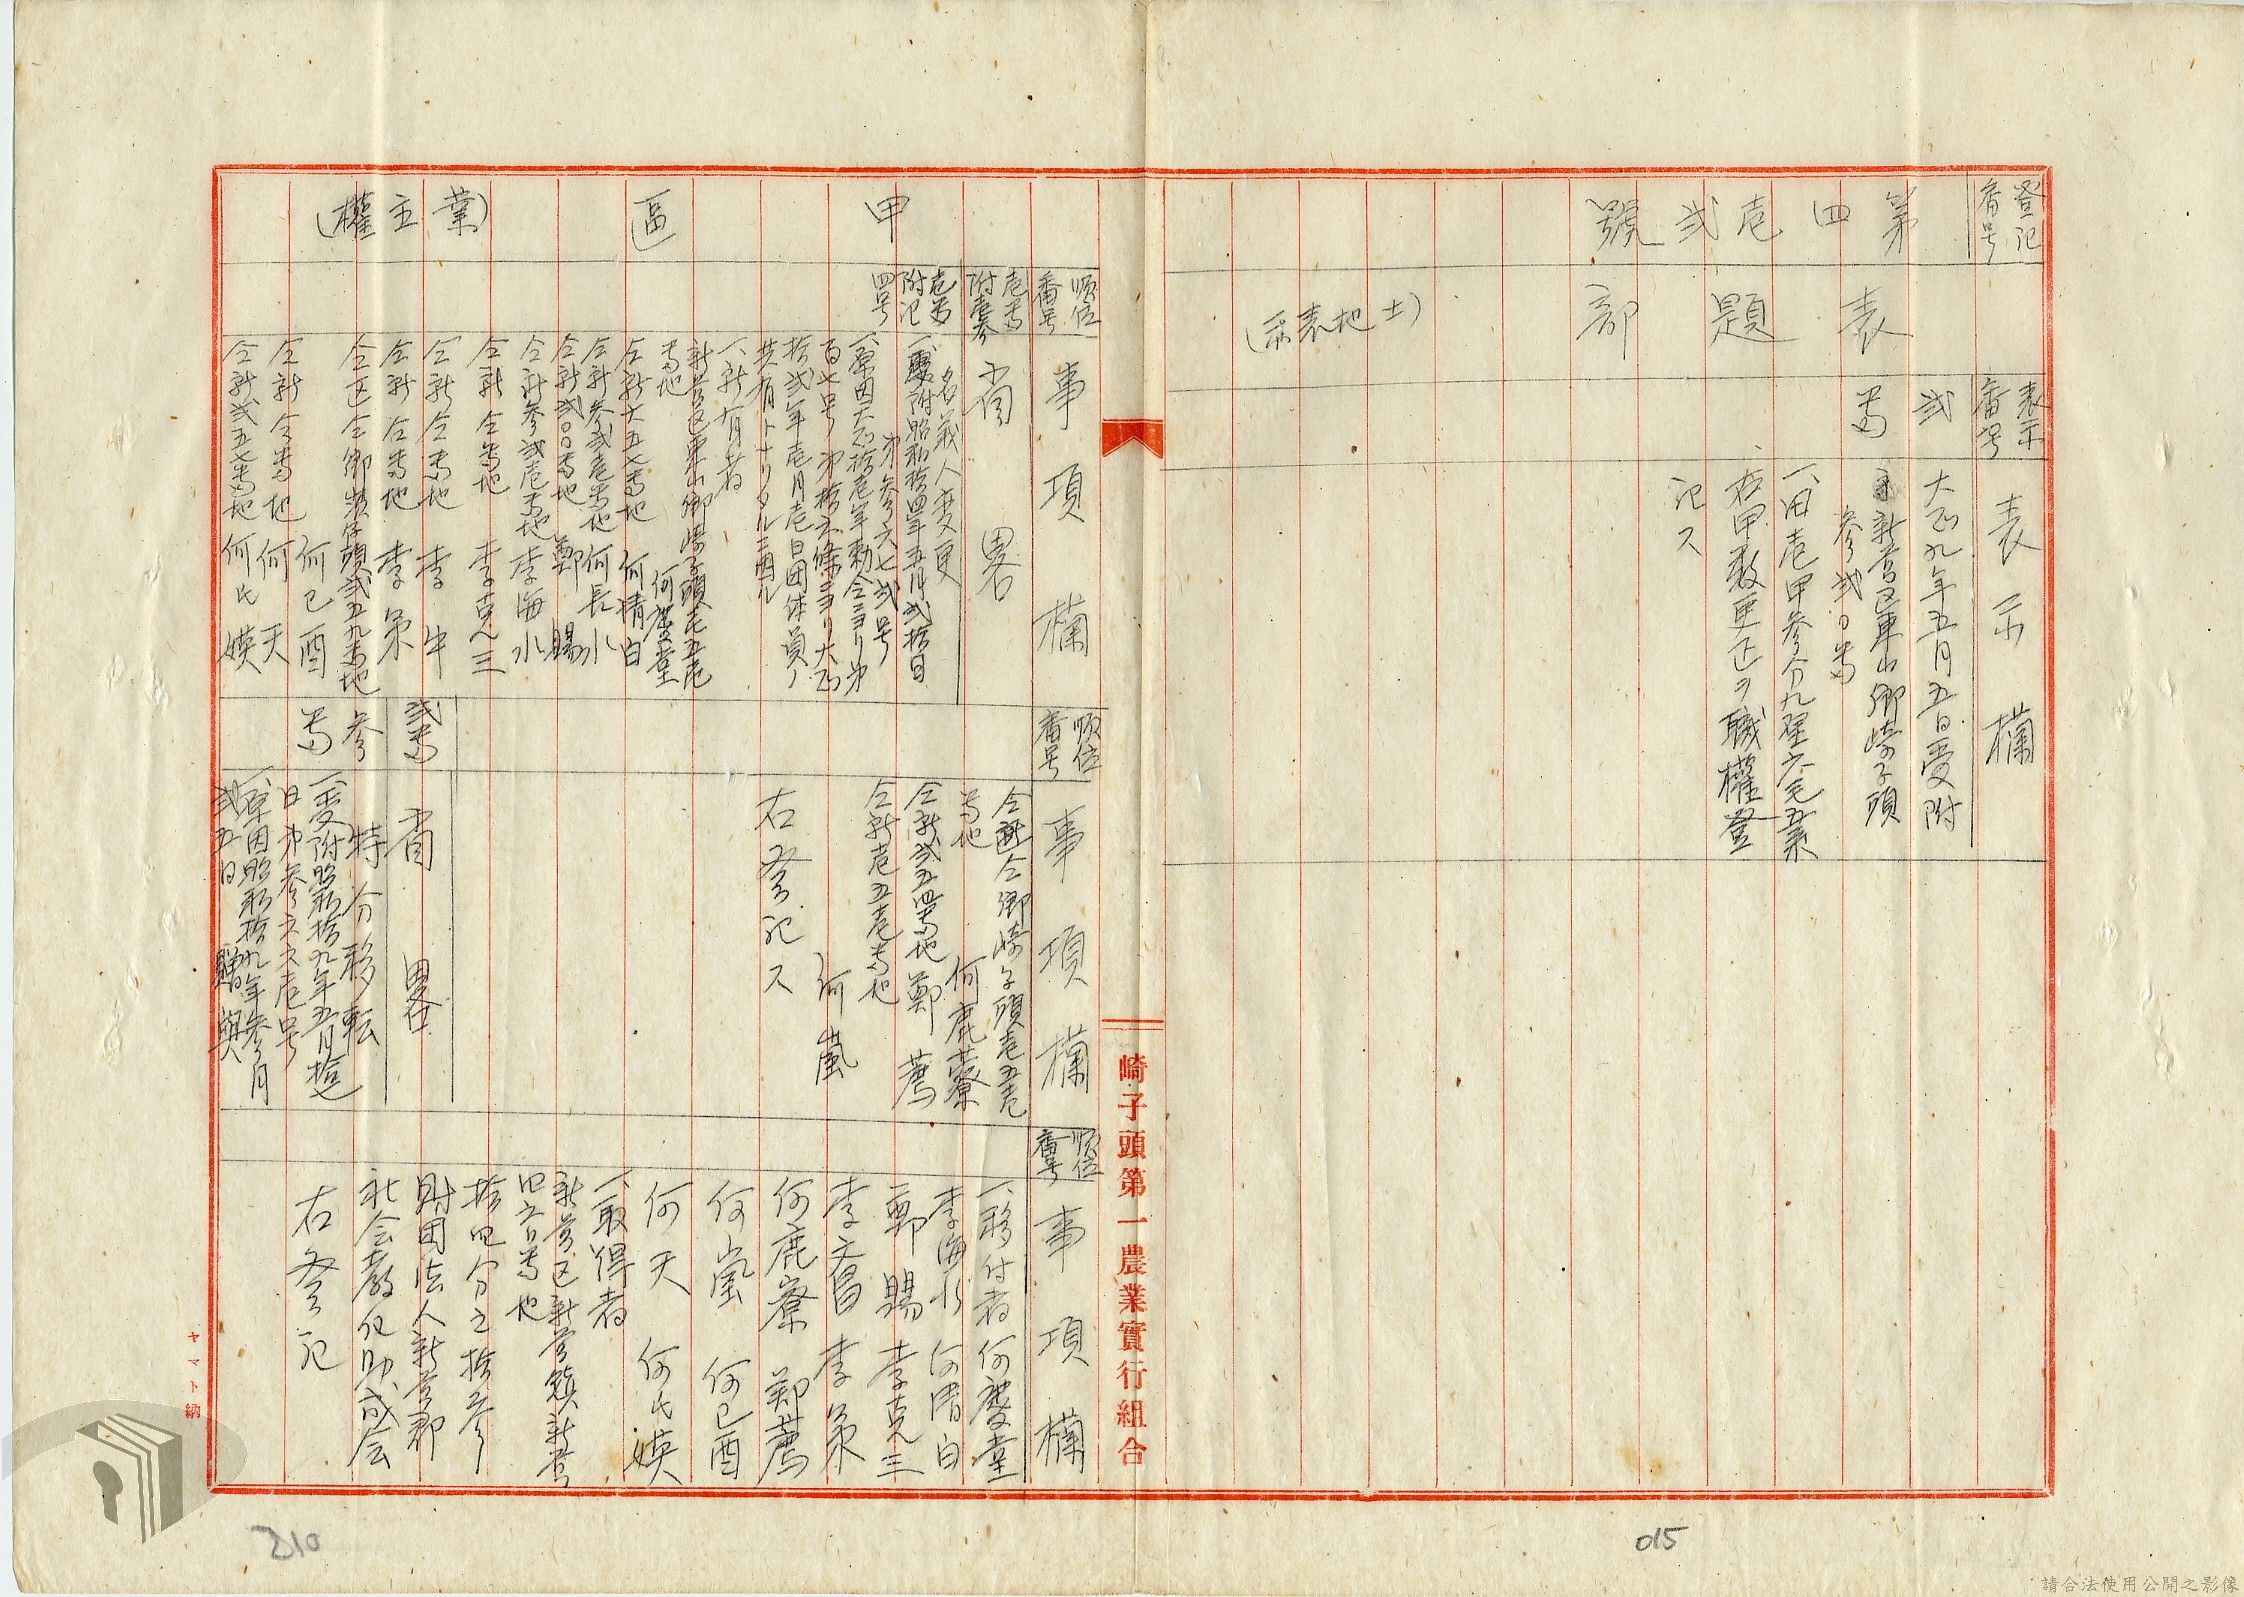 登記
番号
第四壱弐號
表題部
(土地表示)
表示
番号
表示欄
弐
番
大正九年五月五日受附
新営区車山郷崎子頭
参弐0番
一、田壱甲参分九厘六毛五糸
右甲数更正ヲ職權登
記ス
崎子頭第一農業實行組合
甲區
(業主權)
順位
番号
事項欄
壱番
附壱参
省畧
壱番
附記
四号
名義人変更
受附昭和拾四年五月弐拾日
第参六七弐号
一、原因大正拾壱年勅令
百七号第拾六條ニヨリ大正
拾弐年壱月壱日団体員ノ
共有トナリタルニ因ル
一、新有者
新営区車山郷崎子頭壱五壱
番地 何慶堂
仝新六五七番地 何清白
仝新参弐壱番地 何長水
仝新弐00番地 鄭賜
仝新参弐壱番地 李海水
仝新仝番地 李克三
仝新仝番地 李牛
仝新仝番地 李桀
仝区仝郷 弐五九番地
何已酉
仝新仝番地 何天
仝新弐五七番地 何氏媖
順位
番号
事項欄
仝区仝郷崎子頭壱五壱
番地 何鹿藔
仝新弐五四番地 鄭薦
仝新壱五壱番地
何嵐
右登記ス
弐番
省畧
参
番
持分移転
一、受附昭和拾九年五月拾七
日第参六六壱号
一、原因昭和拾九年参月
弐五日 贈與
順位
番号
事項欄
一、移付者 何慶堂
李海水 何清白
鄭賜 李克三
李文昌 李桀
何鹿寮 鄭薦
何嵐 何已酉
何天 何氏媖
一、取得者
新営区新営鎮新営
四六0番地
拾四分之拾参
財団法人新営郡
社会教化助成会
右登記
ヤマト納
015
210
請合法使用公開之影像